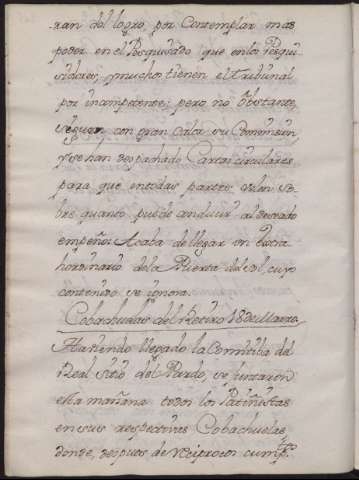 ran del logro, por Contemplar mas
poder en el Pesquisado que en los Pesqui
sidores, y mucho tienen el tribunal
por incompetente; pero no obstante
siguen con gran calor su Comision,
y se han despachado Cartas circulares
para que en todas partes velen so-
bre quanto puede conducir al deseado
empeño: Acaba de llegar un Extra
hordinario de la Puerta del Sol, cuyo
contenido se ignora.
Cobachuelas del Retiro 18 de Marzo.
Haviendo llegado la Comitiba del
Real sitio del Pardo, se juntaron
esta mañana todos los Patiñistas
en sus respectivas Cobachuelas,
donde, despues de reciprocos cump.tos